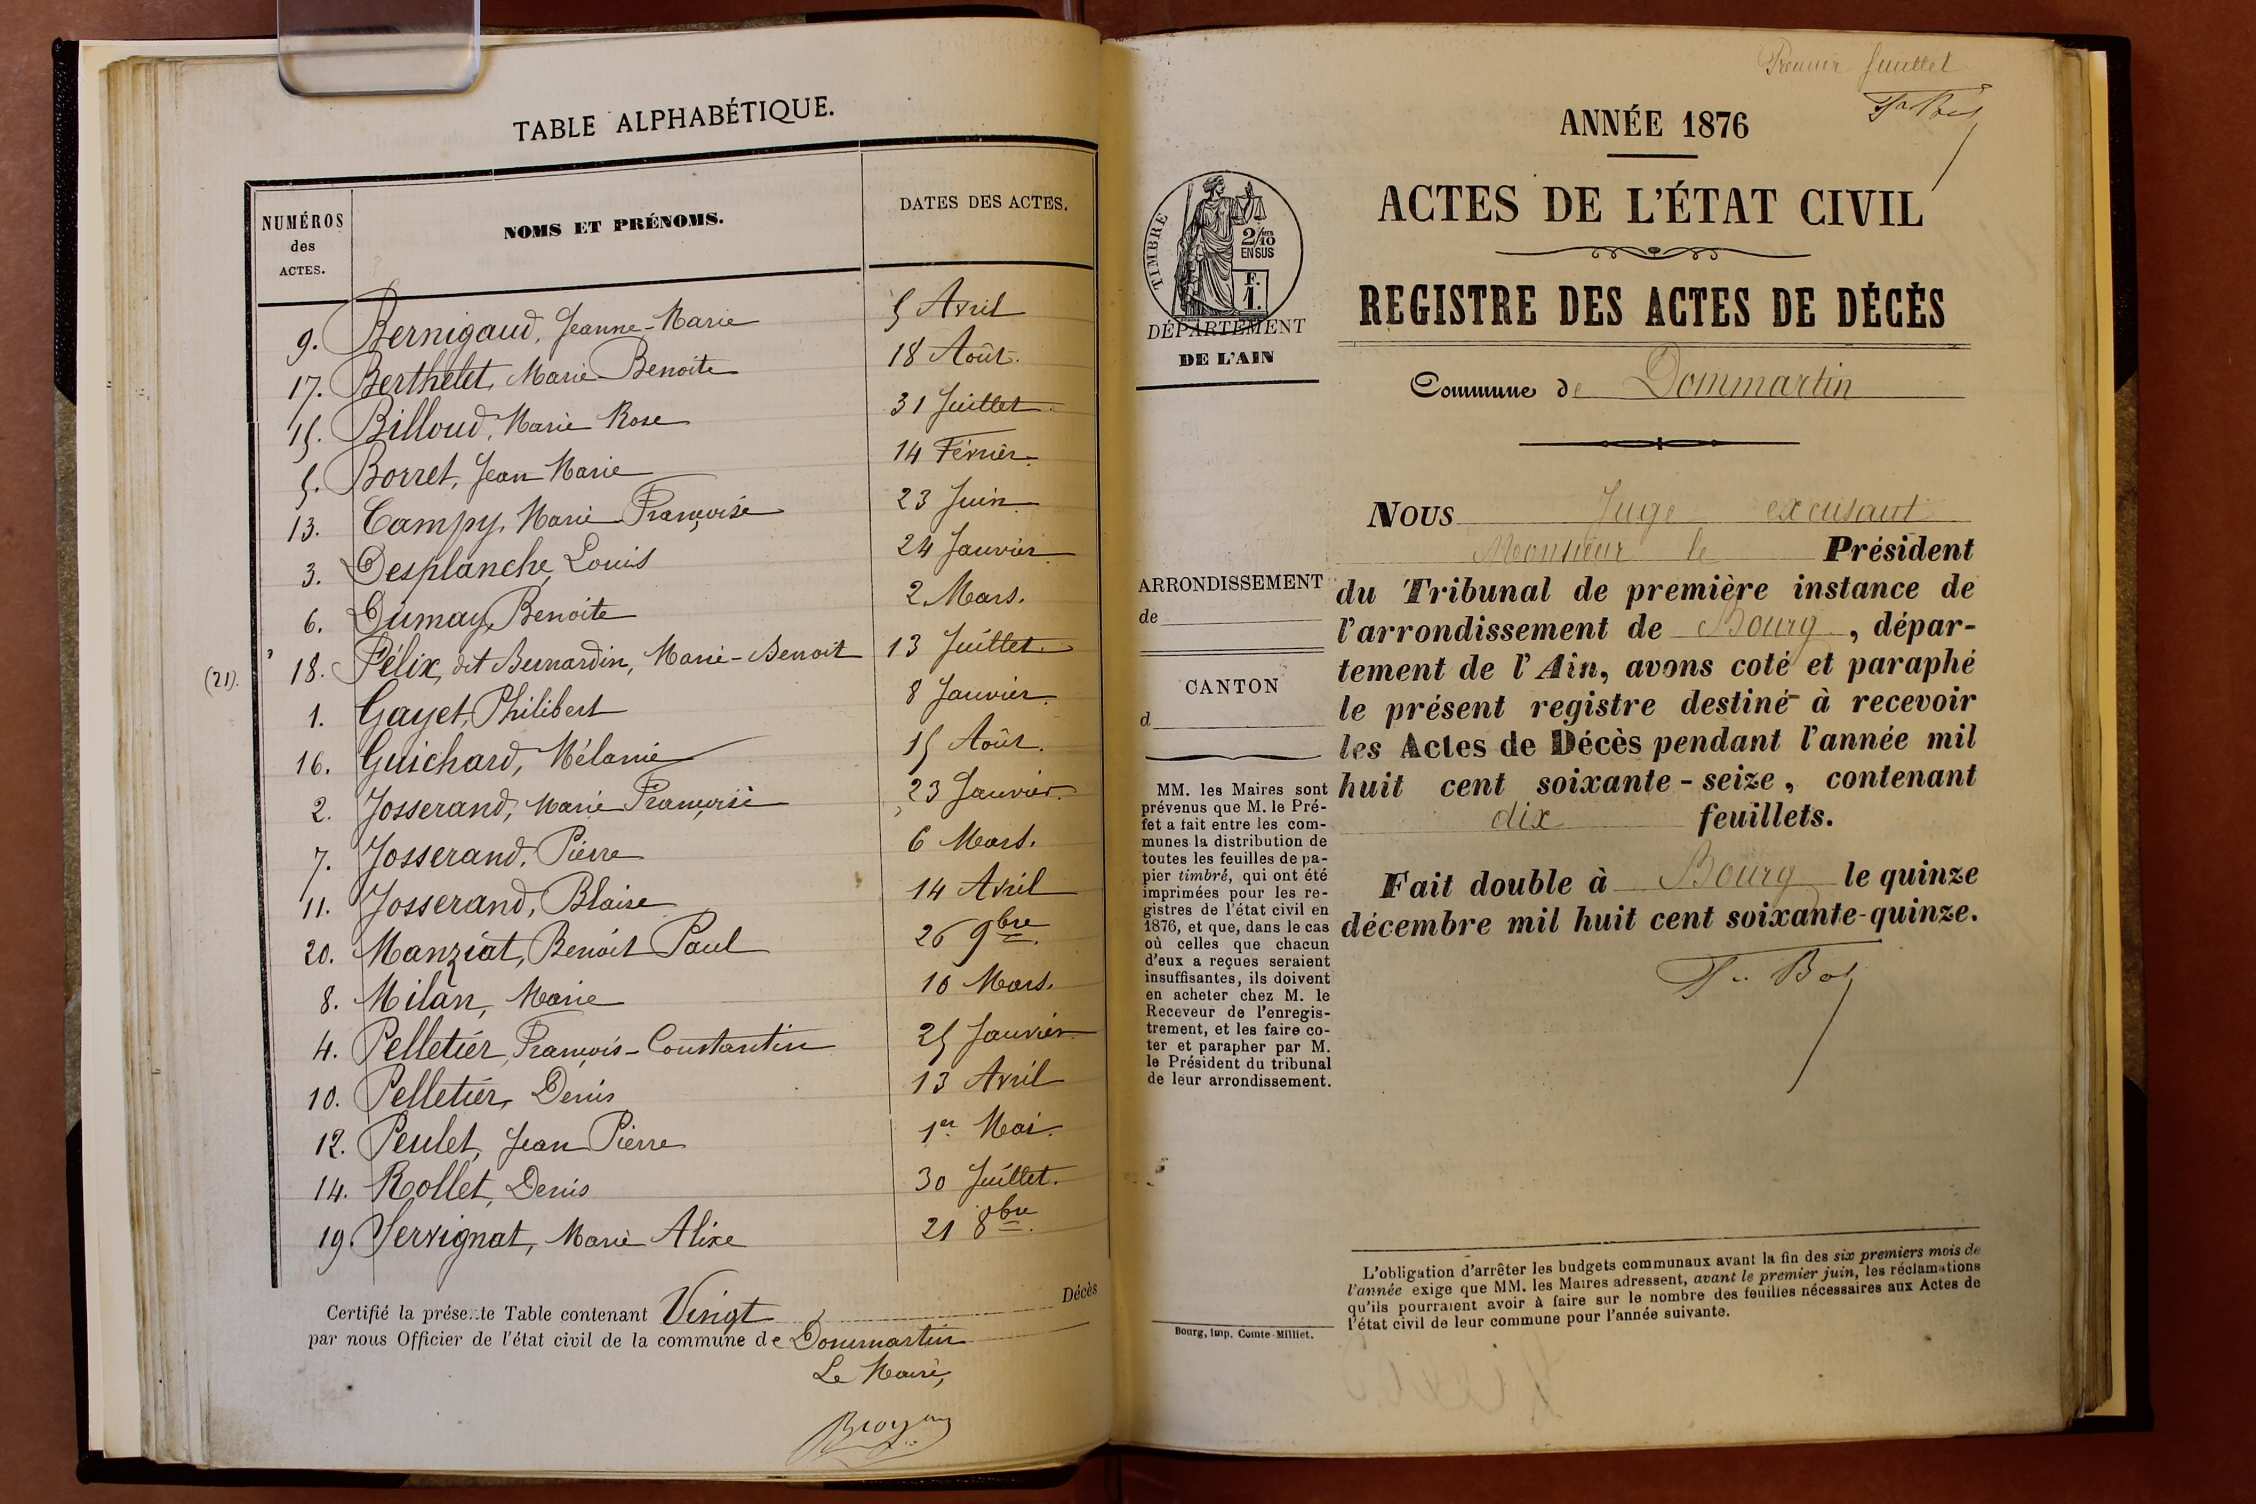 TABLE ALPHABÉTIQUE.
NUMÉROS
des
ACTES.
NOMS ET PRÉNOMS.
DATES DES ACTES.
9. Bernigaud, Jeanne-Marie 5 Avril
17. Berthelet, Marie Benoite 18 Août.
15. Billoud, Marie Rose 31 Juillet.
5. Borret, Jean Marie 14 Février.
13. Campy, Marie Françoise 23 Juin.
3. Desplanche, Louis 24 Janvier.
6. Dumay, Benoite 2 Mars.
(21). 18. Félix, dit Bernardin, Marie-Benoit 13 Juillet.
1. Gayet, Philibert 8 Janvier.
16. Guichard, Mélanie 15 Août.
2. Josserand, Marie Françoise 23 Janvier.
7. Josserand, Pierre 6 Mars.
11. Josserand, Blaise 14 Avril
20. Manziat, Benoit Paul 26 9bre.
8. Milan, Marie 10 Mars.
4. Pelletier, François-Constantin 25 Janvier
10. Pelletier, Denis 13 Avril
12. Peulet, Jean Pierre 1er Mai.
14. Rollet, Denis 30 Juillet.
19. Servignat, Marie Alixe 21 8bre.
Certifié la présente Table contenant Vingt Décès
par nous Officier de l'état civil de la commune de Dommartin
Le Maire,
Premier feuillet
ANNÉE 1876
ACTES DE L'ÉTAT CIVIL
REGISTRE DES ACTES DE DÉCÈS
TIMBRE
2/10
EN SUS
F.
1.
DÉPARTEMENT
DE L'AIN
Commune de Dommartin
ARRONDISSEMENT
de
CANTON
d
MM. les Maires sont
prévenus que M. le Pré-
fet a fait entre les com-
munes la distribution de
toutes les feuilles de pa-
pier timbré, qui ont été
imprimées pour les re-
gistres de l'état civil en
1876, et que, dans le cas
où celles que chacun
d'eux a reçues seraient
insuffisantes, ils doivent
en acheter chez M. le
Receveur de l'enregis-
trement, et les faire co-
ter et parapher par M.
le Président du tribunal
de leur arrondissement.
Bourg, Imp. Comte-Milliet.
Nous Juge excusant
Monsieur le Président
du Tribunal de première instance de
l'arrondissement de Bourg, dépar-
tement de l'Ain, avons coté et paraphé
le présent registre destiné à recevoir
les Actes de Décès pendant l'année mil
huit cent soixante-seize, contenant
dix feuillets.
Fait double à Bourg le quinze
décembre mil huit cent soixante-quinze.
L'obligation d'arrêter les budgets communaux avant la fin des six premiers mois de
l'année exige que MM. les Maires adressent, avant le premier juin, les réclamations
qu'ils pourraient avoir à faire sur le nombre des feuilles nécessaires aux Actes de
l'état civil de leur commune pour l'année suivante.